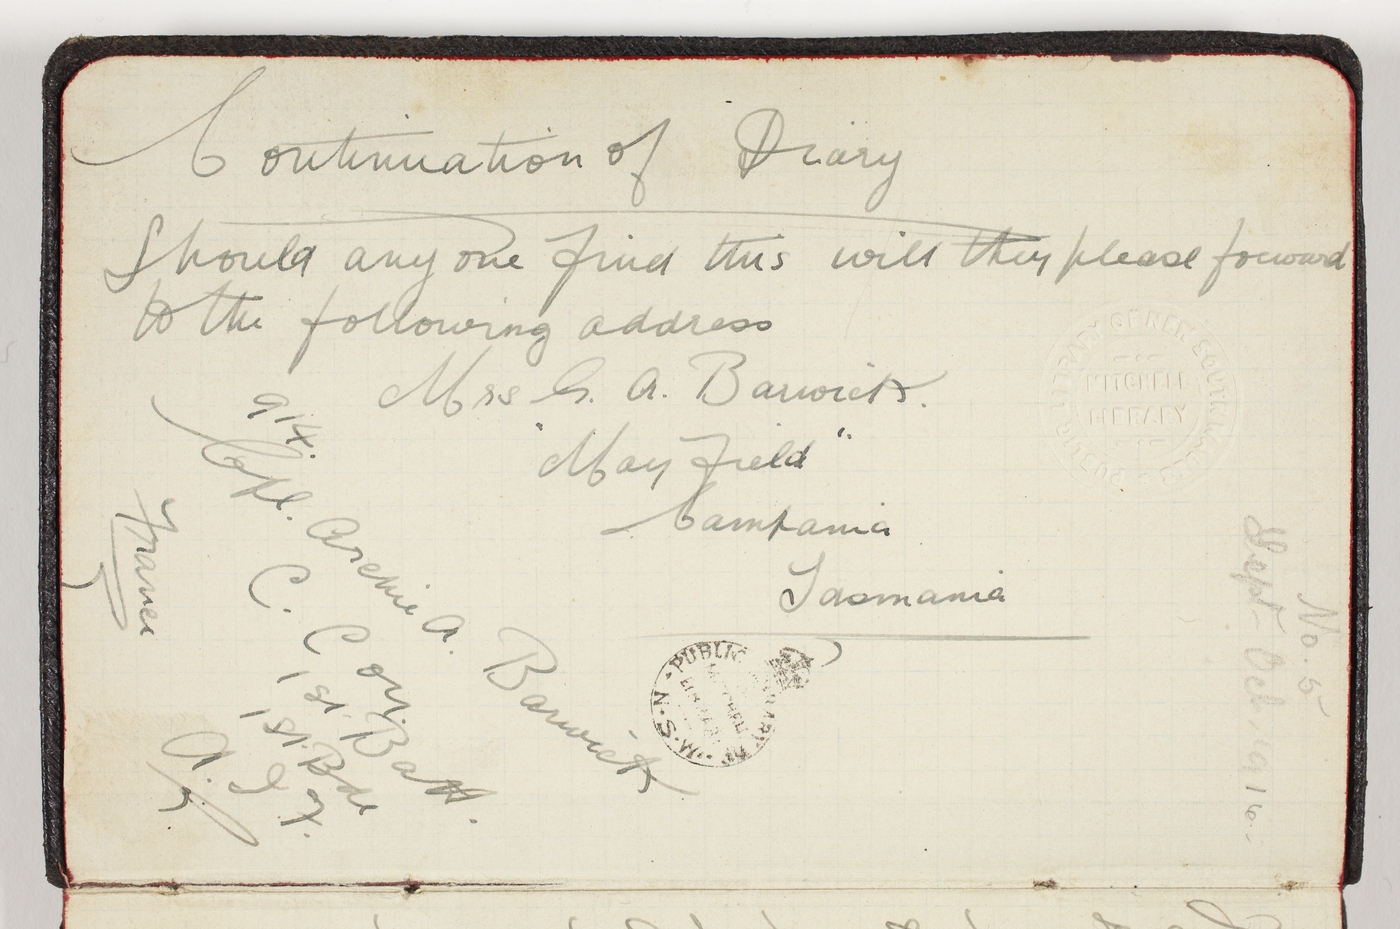 Continuation of Diary
Should any one find this will they please foward
to the following address
Mrs G. A. Barwick.
"May Field"
Campania
Tasmania
914.
Cpl. Archie A. Barwick
C. Coy.
1st. Batt.
1st. Bde
A. I. F.
France
No. 5
Sept - Oct, 1916.
PUBLIC LIBRARY OF NEW SOUTH WALES
MITCHELL
LIBRARY
PUBLIC LIBRARY N·S·W·
MITCHELL
LIBRARY